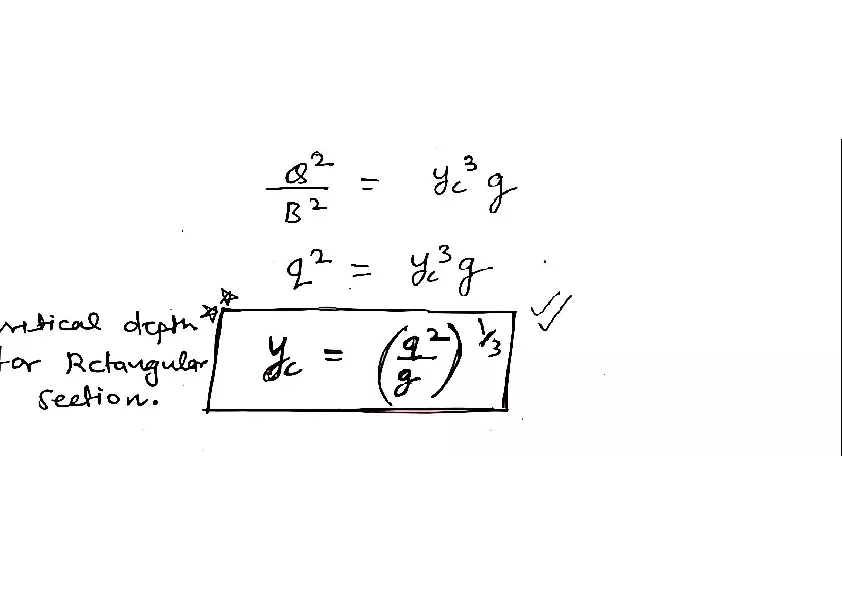 Q²/B² = y_c³ g
q² = y_c³ g
critical depth ☆☆
for Rctangular
section.
y_c = (q²/g)^1/3 ✓✓